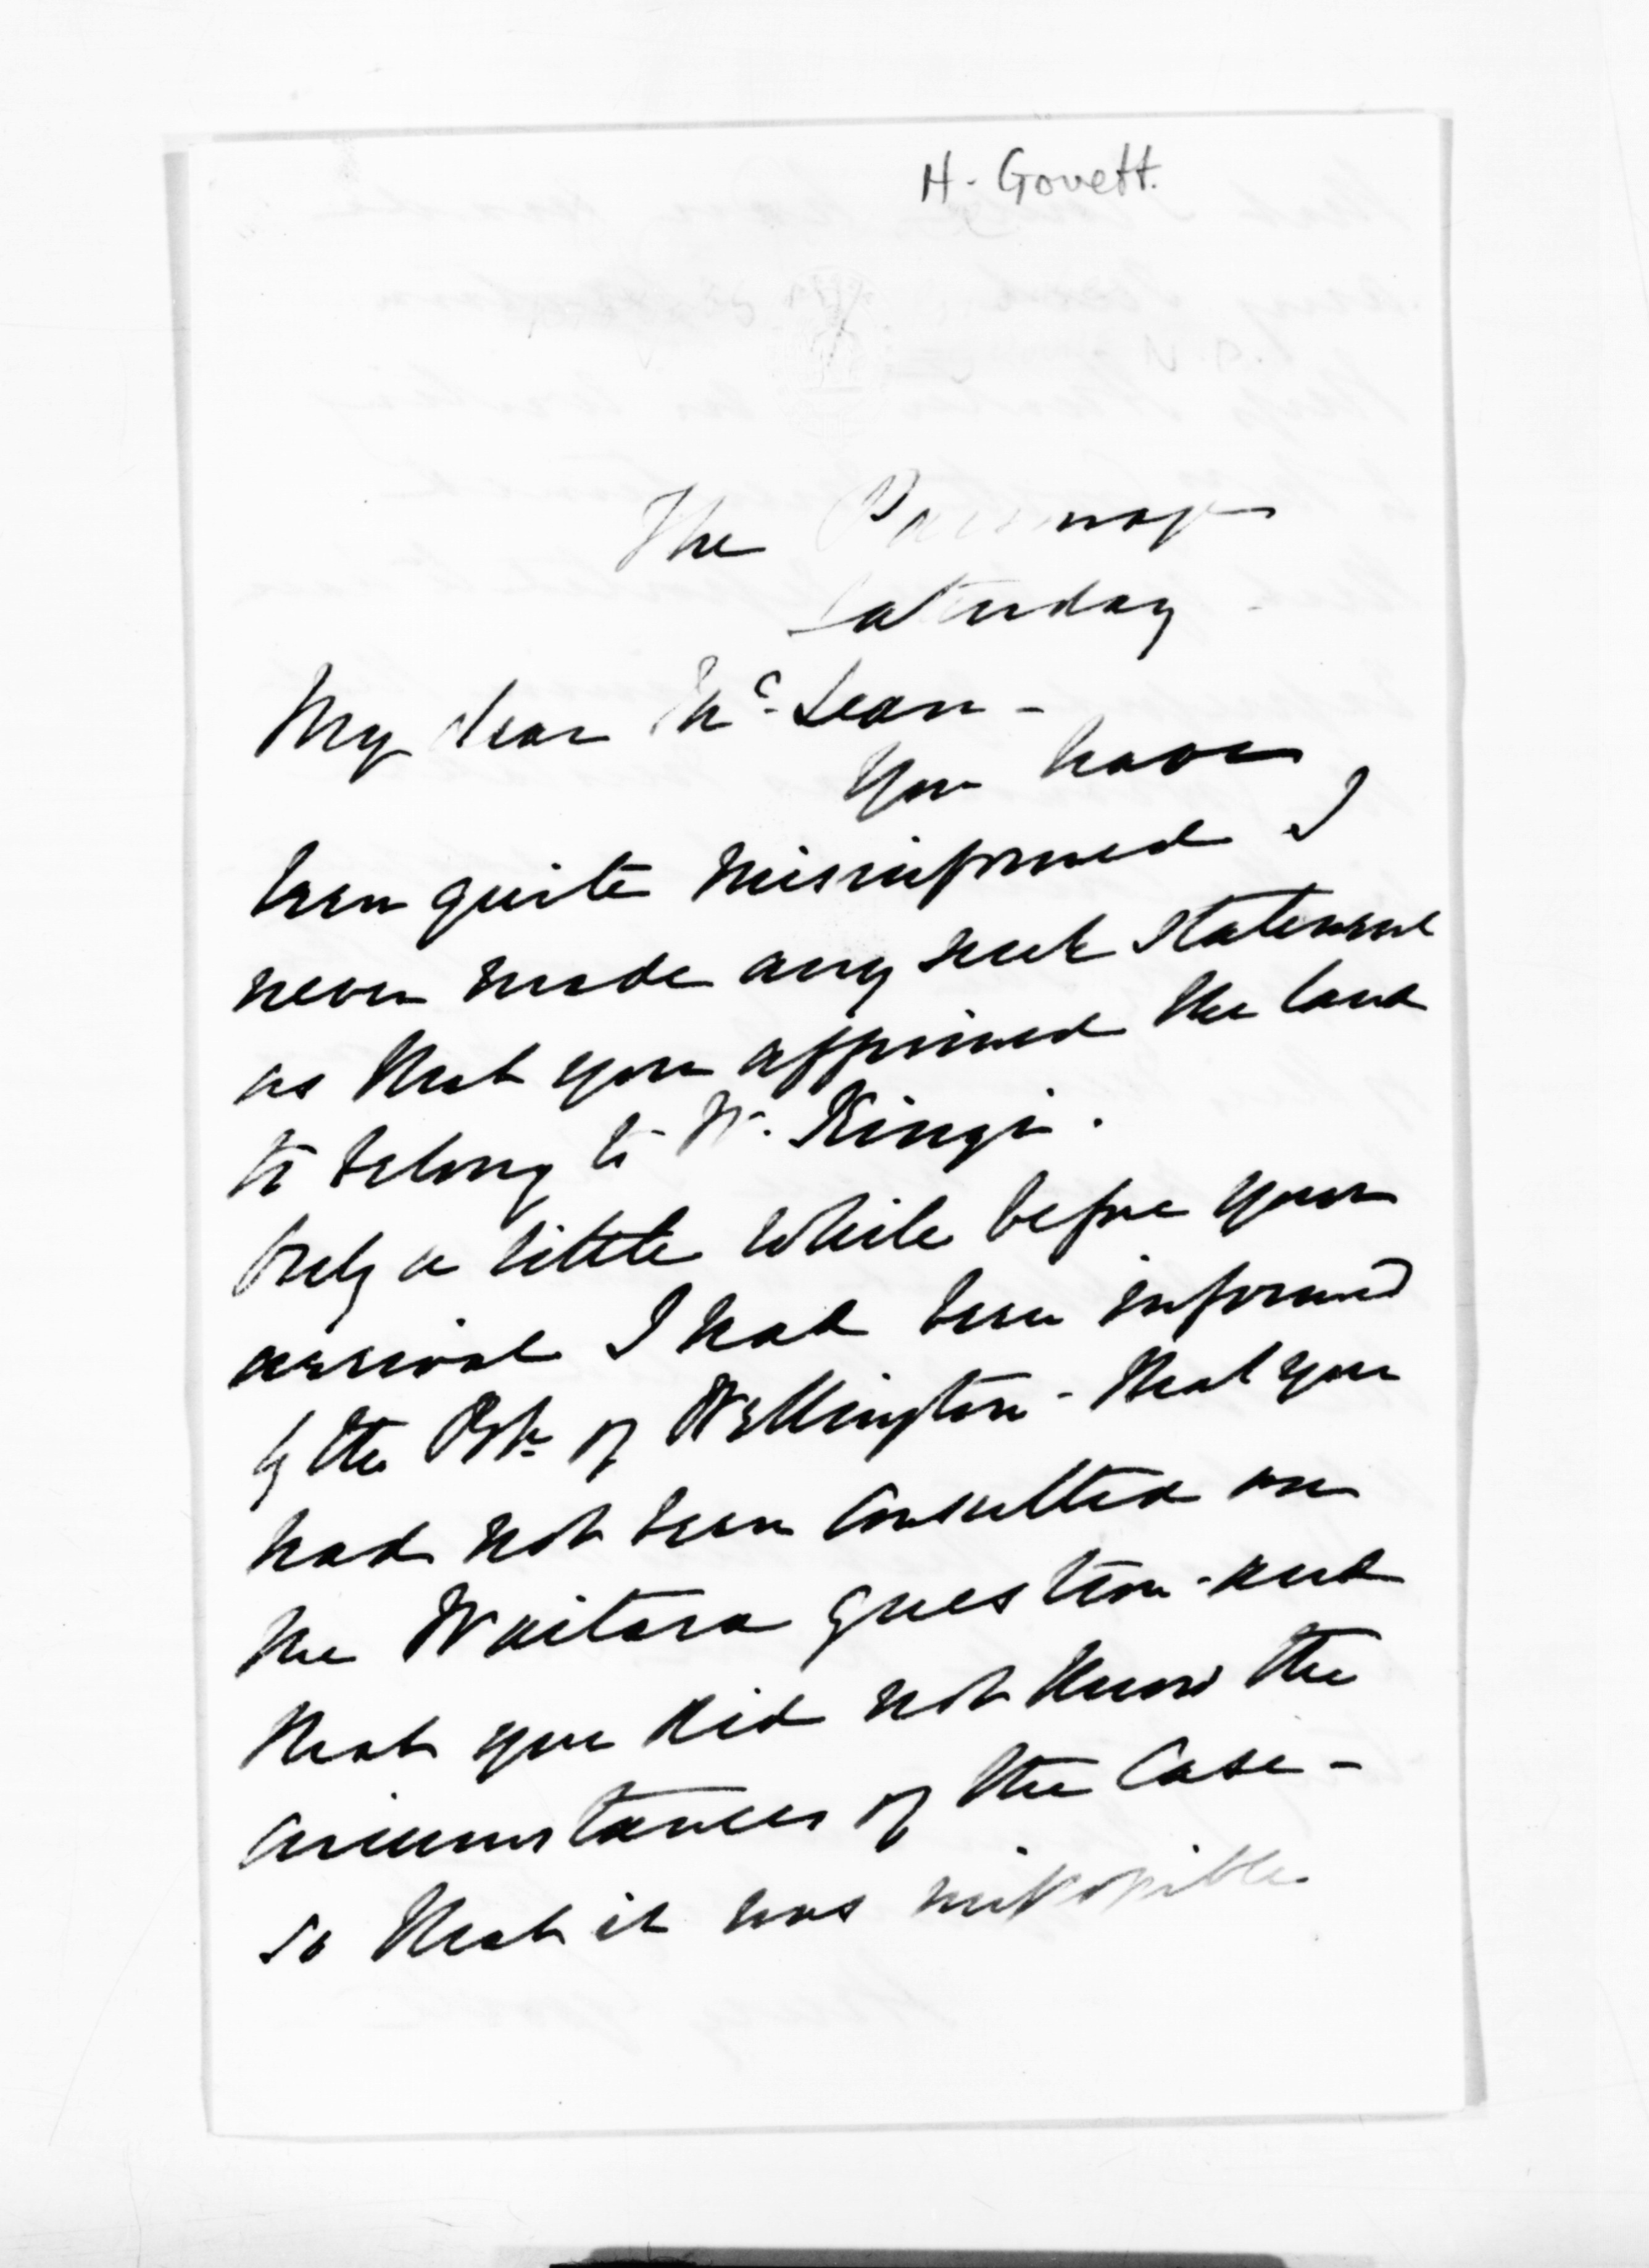 H. Govett.
The Parsonage
Saturday
My dear McLean -
You have
been quite misinformed I
never made any such statement
as that you affirmed the land
to belong to W. Kingi.
Only a little while before your
arrival I had been informed
by the Bp. of Wellington - that you
had not been consulted on
the Waitara question - and
that you did not know the
circumstances of the Case -
so that it was impossible